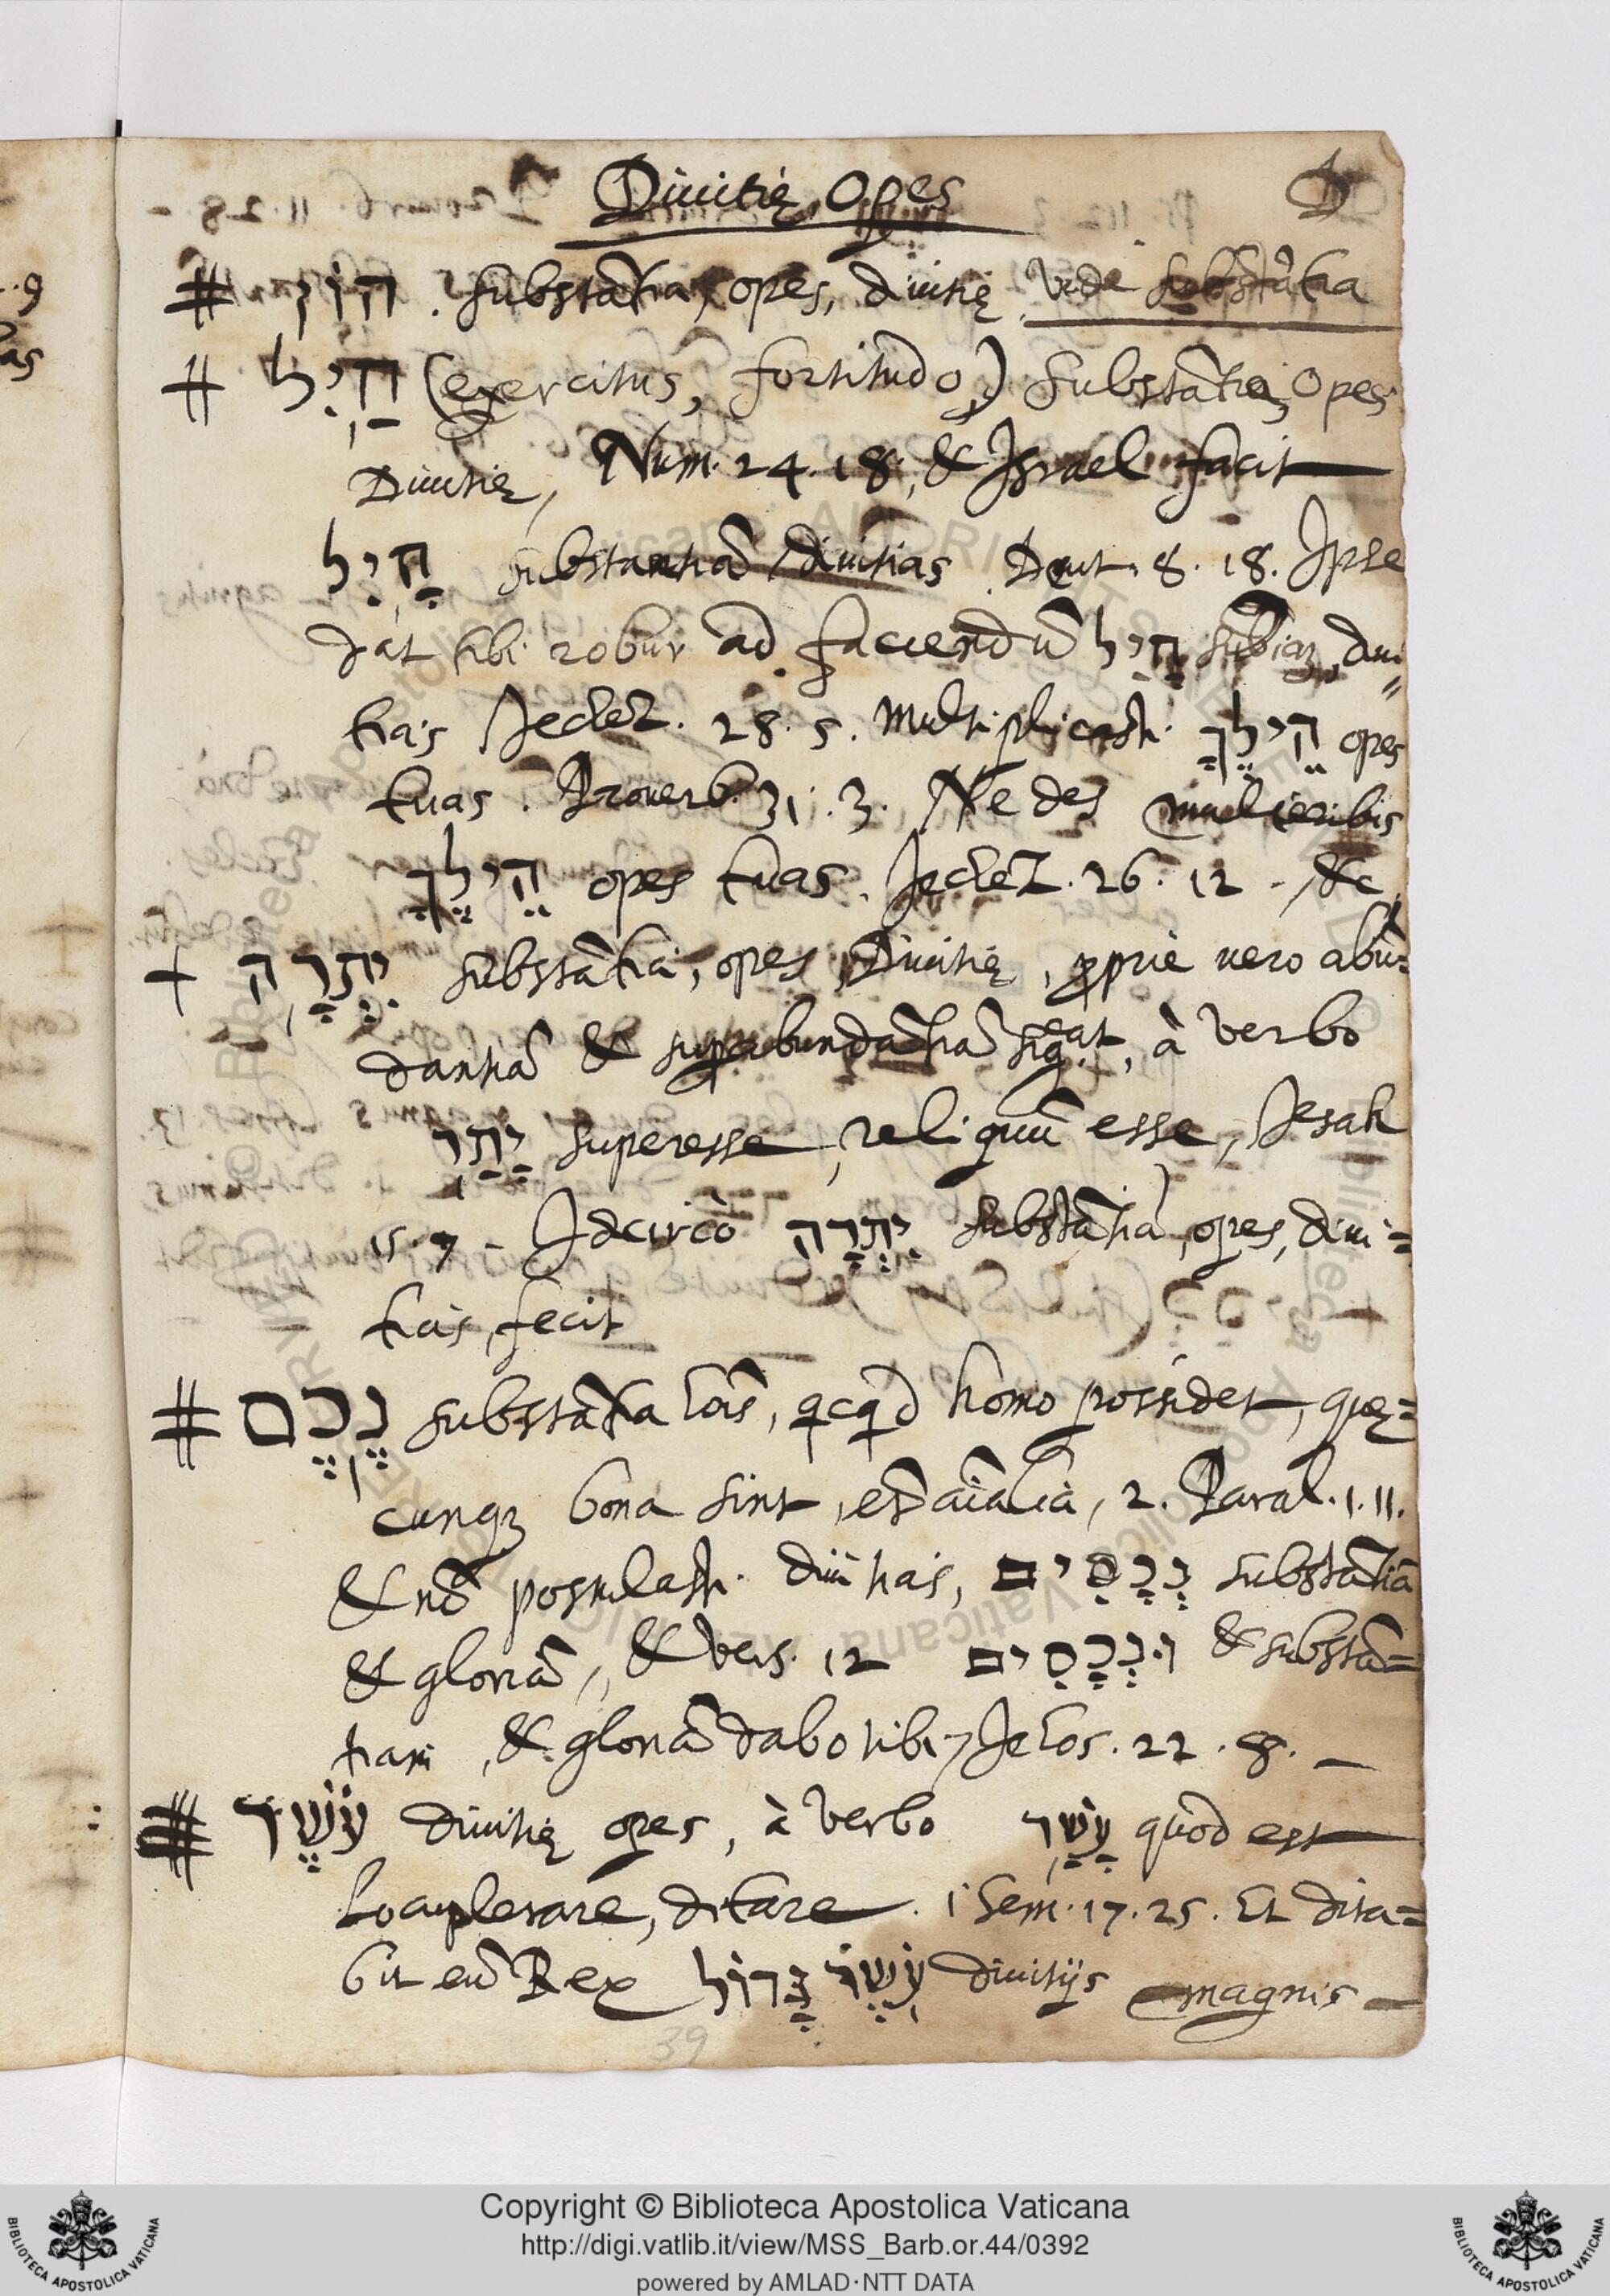 Diuitię, Opes
הוֹן . substãtia, opes, diuitię, vide substãtia
חַיִל (exercitus, fortitudo,) Substãtia, Opes
Diuitię, Num. 24. 18, & Israel facit
חָיִל substantiã, diuitias. Deut. 8. 18. Ipse
dat tibi robur ad faciendũ חָיִל diui
tias Jechez. 28. 5. Multiplicasti חֵילֶךָ opes
tuas. Prouerb. 31. 3. Ne des mulieribis
חֵילֶךָ opes tuas. Jechez. 26. 12 . &c
יִתְרָה substãtia, opes, Diuitię, ꝓprie uero abũ=
dantiã & superabundãtiã sigat, à verbo
יָתַר superesse, reliquũ esse, Jesah
15. 7 - Idcircò יִתְרָה substãtiã, opes, diui=
tias, fecit
נֶכֶס substãtia õis, qcqd homo possidet, quę=
cunqꝫ bona sint, et ãialia, 2. Paral. 1. 11.
& nõ postulasti diuitias, נְכָסִים substãtiã
& gloriã, & vers. 12 וּנְכָסִים & substã=
tiam, & gloriã dabo tibi, Jehos. 22. 8. -
עֹשֶׁר diuitię opes, à verbo עָשַׁר quod est
Locupletare, ditare. 1 Sem. 17. 25. Et dita=
bit eũ Rex עֹשֶׁר גָּדוֹל diuitijs magnis -
39
Copyright © Biblioteca Apostolica Vaticana
http://digi.vatlib.it/view/MSS_Barb.or.44/0392
powered by AMLAD·NTT DATA
BIBLIOTECA APOSTOLICA VATICANA
BIBLIOTECA APOSTOLICA VATICANA